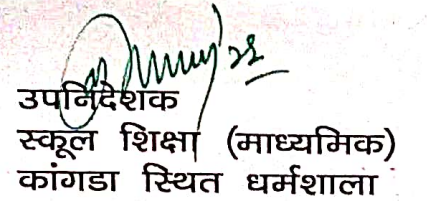 उपनिदेशक
स्कूल शिक्षा (माध्यमिक)
कांगडा स्थित धर्मशाला